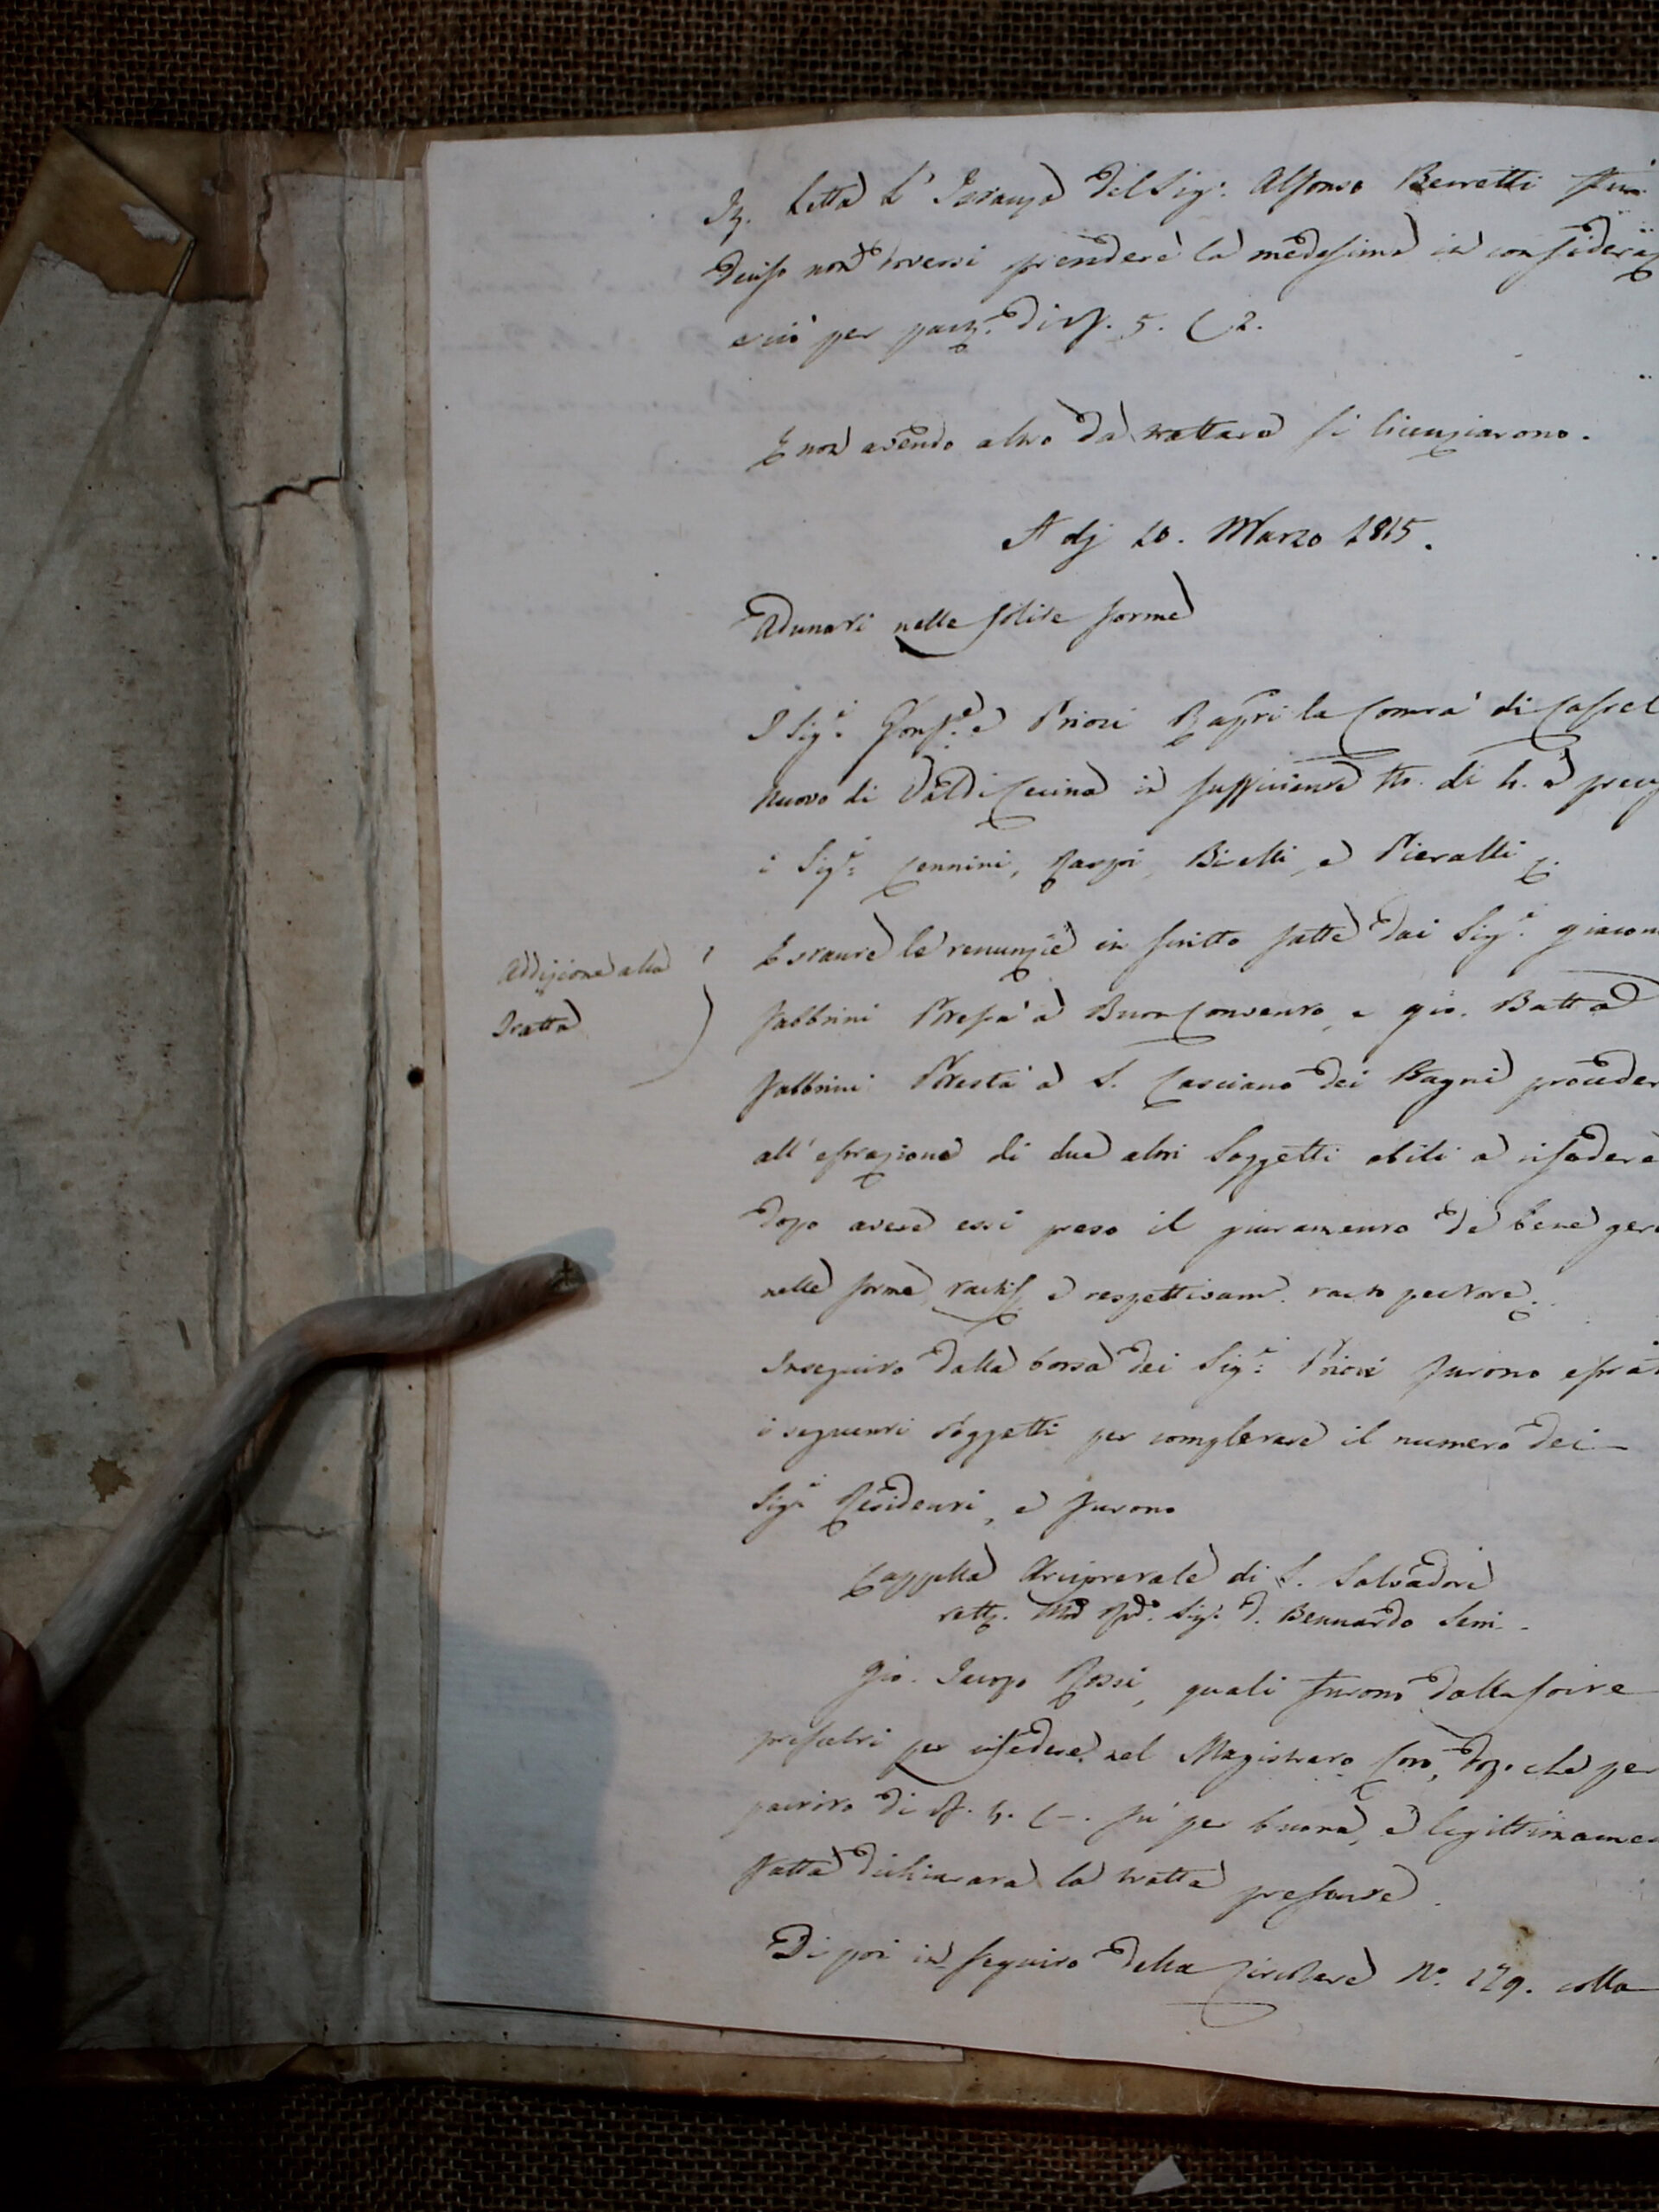 Letta L' Istanza del Sig:r Alfonso Berretti fu
deciso non doversi prendere la medesima in consideraz
e ciò per part. di 5. C 2.
E non avendo altro da trattare si licenziarono.
A dj 10. Marzo 1815.
Adunati nelle solite forme
I Sig:i Gonf:re e Priori Rapp:ri la Comtà di Castel
nuovo di Val di Cecina in sufficiente No. di 4.
i Sig:i Cennini, Serpi, Bicelli, e Pieralli
Addizione alla
Tratta
Estante le renunzie in scritto fatte dai Sig:i Giacom
Fabbrini Potestà a Buon Convento, e Gio. Batta
Fabbrini Potestà a S. Casciano dei Bagni proceder
all' estrazione di due altri Soggetti abili a risedere
dopo avere essi preso il giuramento di bene ger
nelle forme tactis e respettivam. tacto pectore.
In seguito dalla borsa dei Sig:i Priori furono estrat
i seguenti Soggetti per completare il numero dei
Sig:i Residenti, e furono
Cappella Arcipretale di S. Salvadore
rett. Sig. D. Bernardo Seri
Gio. Jacopo Rossi, quali furono dalla sorte
prescelti per risedere nel Magistrato che per
partito di 4. C -. fu per buona, e legittimamen
fatta dichiarata la tratta presente.
Di poi in seguito della Circolare No. 129. colla